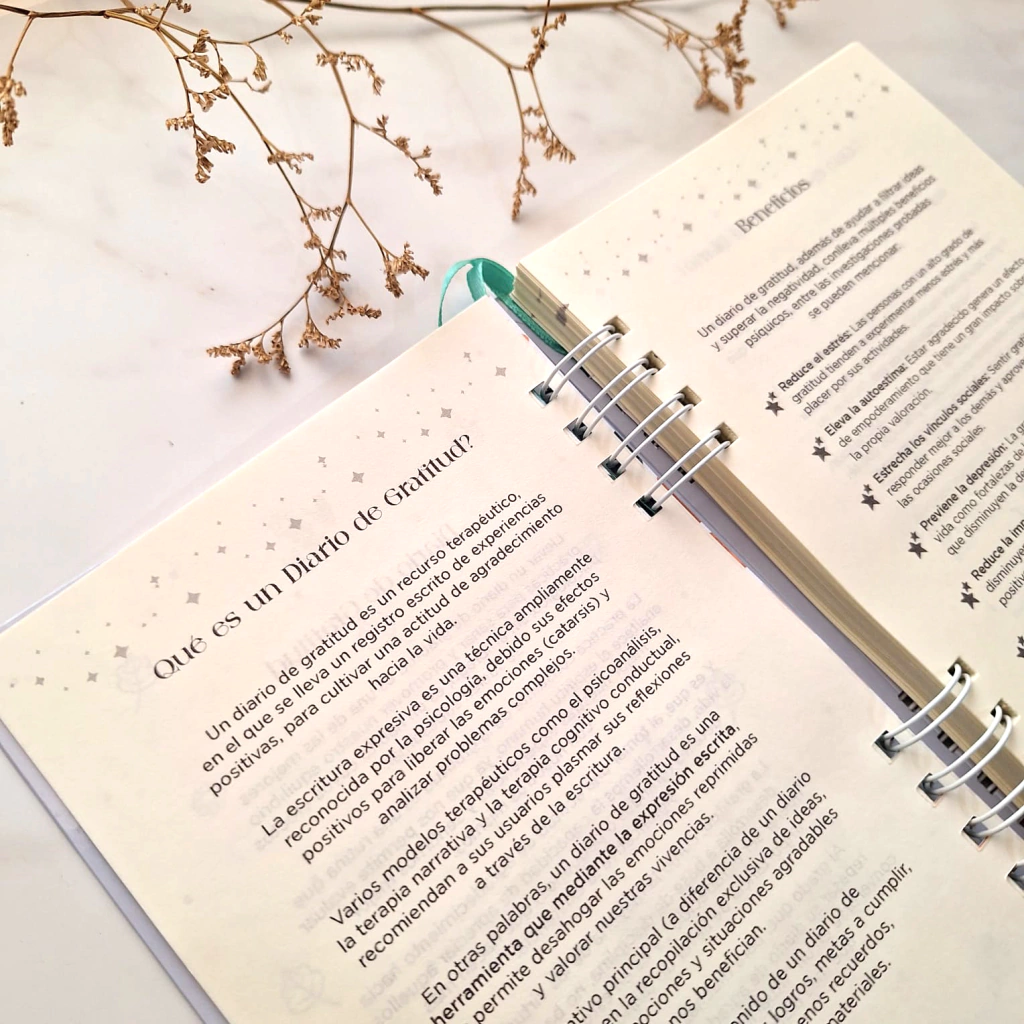 Qué es un Diario de Gratitud?
Un diario de gratitud es un recurso terapéutico,
en el que se lleva un registro escrito de experiencias
positivas, para cultivar una actitud de agradecimiento
hacia la vida.
La escritura expresiva es una técnica ampliamente
reconocida por la psicología, debido sus efectos
positivos para liberar las emociones (catarsis) y
analizar problemas complejos.
Varios modelos terapéuticos como el psicoanálisis,
la terapia narrativa y la terapia cognitivo conductual,
recomiendan a sus usuarios plasmar sus reflexiones
a través de la escritura.
En otras palabras, un diario de gratitud es una
herramienta que mediante la expresión escrita,
permite desahogar las emociones reprimidas
y valorar nuestras vivencias.
principal (a diferencia de un diario
en la recopilación exclusiva de ideas,
y situaciones agradables
nos benefician.
de un diario de
logros, metas a cumplir,
recuerdos,
materiales.
Beneficios
Un diario de gratitud, además de ayudar a filtrar ideas
y superar la negatividad, conlleva múltiples beneficios
psíquicos, entre las investigaciones probadas
se pueden mencionar:
Reduce el estrés: Las personas con un alto grado de
gratitud tienden a experimentar menos estrés y más
placer por sus actividades.
Eleva la autoestima: Estar agradecido genera un efecto
de empoderamiento que tiene un gran impacto
la propia valoración.
Estrecha los vínculos sociales: Sentir
responder mejor a los demás y
las ocasiones sociales.
Previene la depresión: La
vida como fortalezas
que disminuyen la
Reduce la